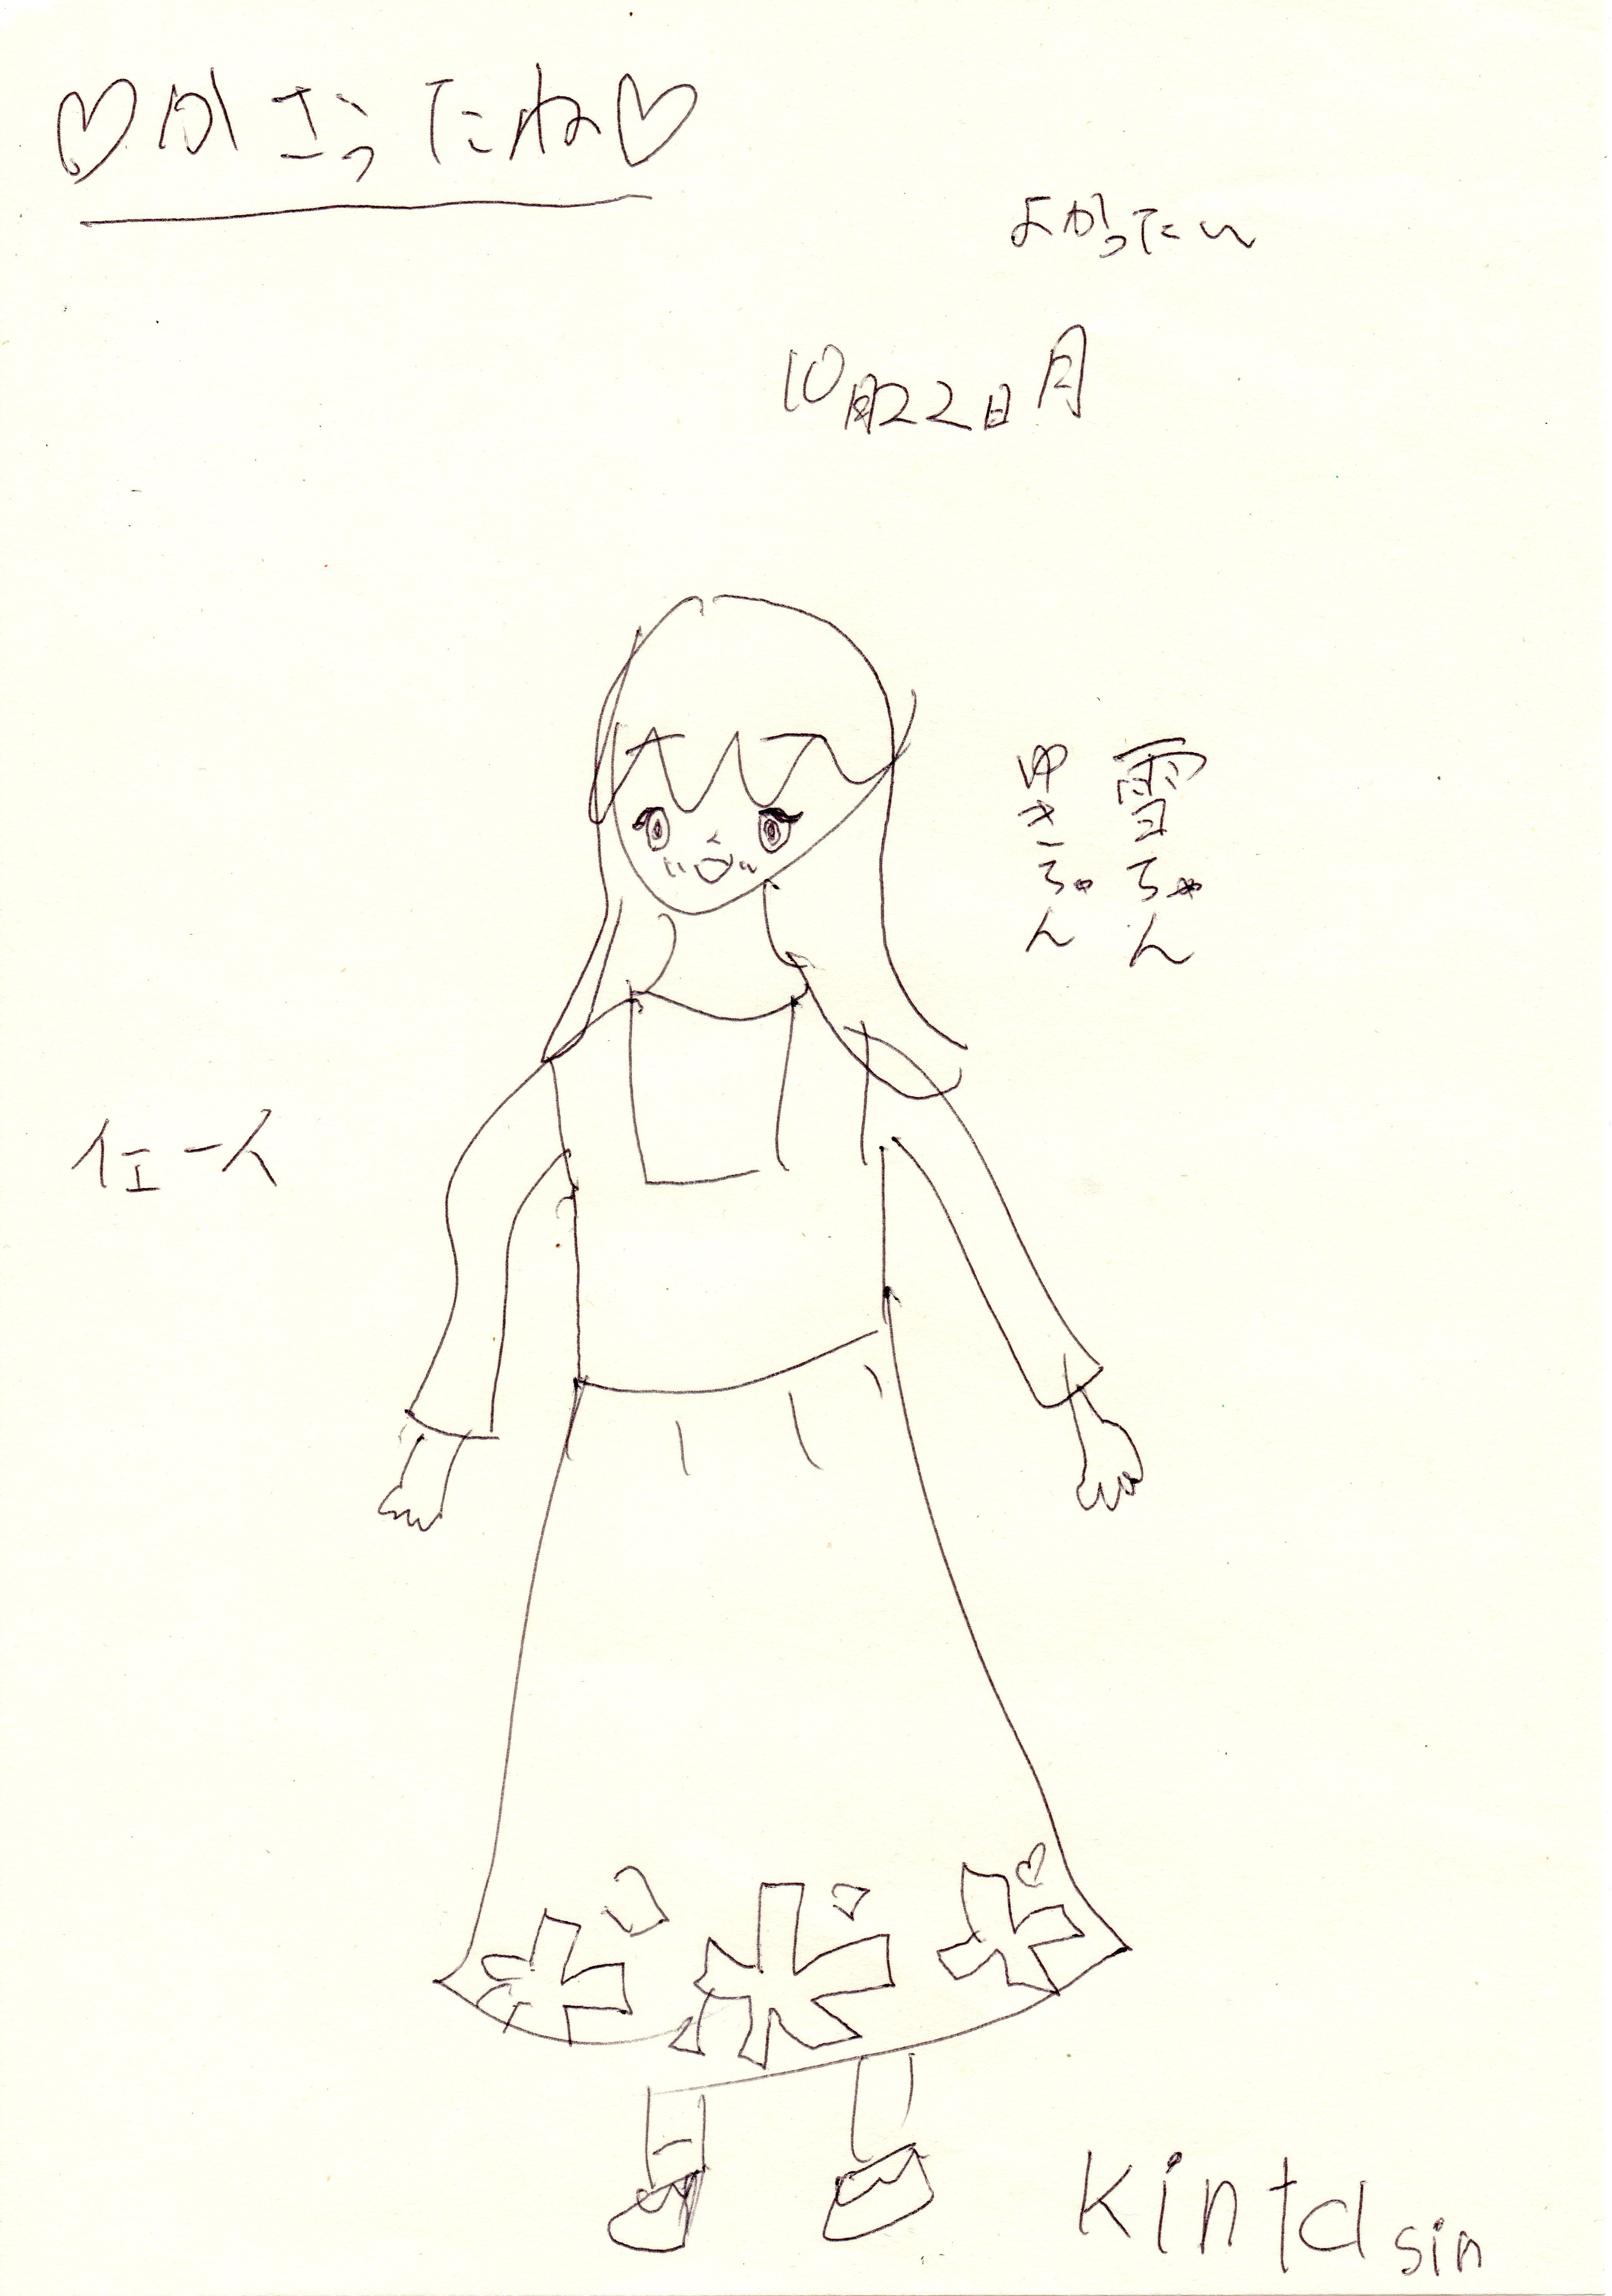 ♡かさったね♡
よかったい
10月22日月
雪ちゃん
ゆきちゃん
イエーイ
kinta sin